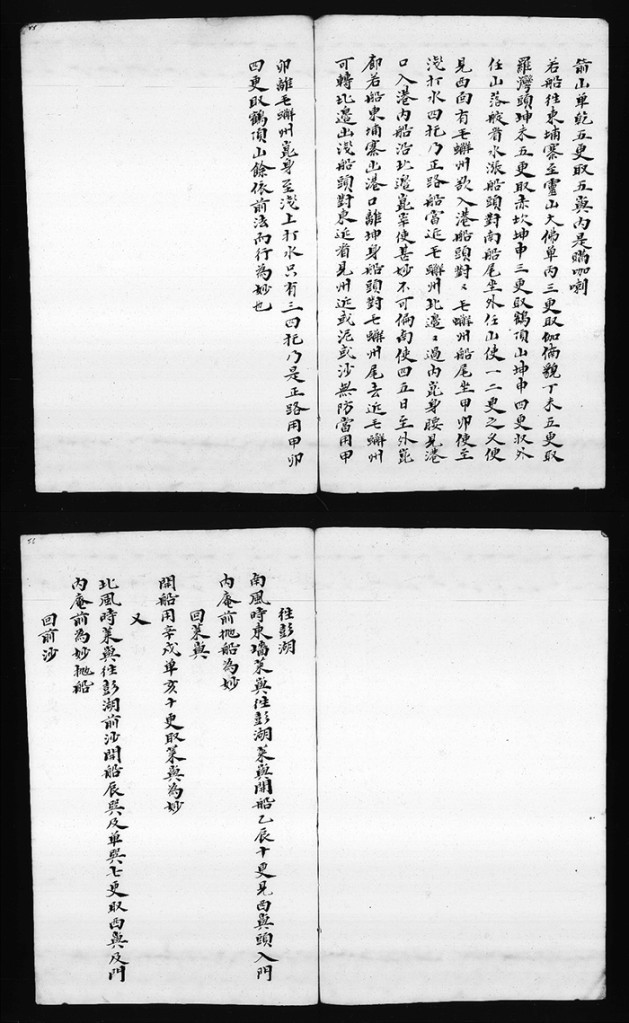 箭山单乾五更取五與内是瞞咖喇
若船往東埔寨至靈山大佛单丙三更取伽俑貌丁未五更取
羅灣頭坤未五更取赤坎坤申三更取鶴頂山坤申四更取外
任山落舵看水漲船頭對南船尾坐外任山使一二更之又使
見西南有毛蠏州欲入港船頭對々毛蠏州船尾坐甲卯使至
浅打水四托乃正路船當近毛蠏州北邊々過内崑身腰見港
口入港内船沿北邊崑辜使甚妙不可偏南使四五日至外崑
廊若船東埔寨出港口離坤身船頭對毛蠏州尾去近毛蠏州
可轉北邊出浅船頭對東近看見州近或泥或沙無防當用甲
卯離毛蠏州崑身至浅上打水只有三四托乃是正路用甲卯
四更取鶴頂山餘依前法而行為妙也
往彭湖
南風時東墙萊與往彭湖萊與開船乙辰十更見西與頭入門
内庵前抛船為妙
回萊與
開船用辛戌单亥十更取萊與為妙
又
北風時萊與往彭湖前沙開船辰與及单與七更取西與及門
内庵前為妙抛船
回前沙